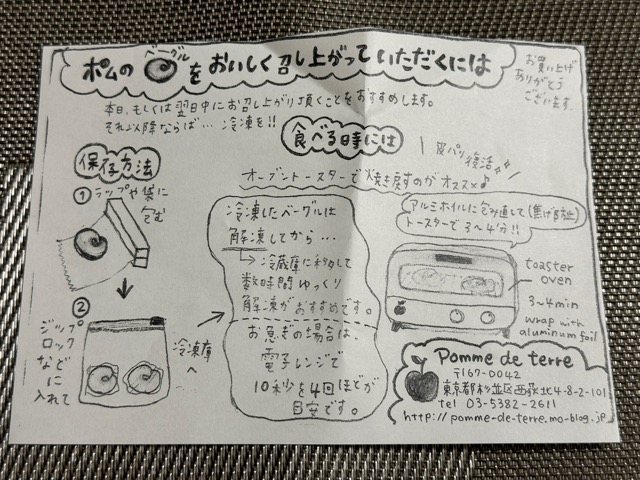 ポムの ベーグル をおいしく召し上がっていただくには
お買い上げ
ありがとう
ございます。
本日、もしくは翌日中にお召し上がり頂くことをおすすめします。
それ以降ならば… 冷凍を!!
保存方法
① ラップや袋に
包む
②
ジップ
ロック
などに
入れて
冷凍庫
へ
食べる時には
皮パリ復活
オーブントースターで焼き戻すのがオススメ♪
冷凍したベーグルは
解凍してから…
→冷蔵庫に移して
数時間ゆっくり
解凍がおすすめです。
お急ぎの場合は、
電子レンジで
10秒を4回ほどが
目安です。
アルミホイルに包み直して(焦げ防止)
トースターで3〜4分!!
toaster
oven
3~4min
wrap with
aluminum foil
Pomme de terre
〒167-0042
東京都杉並区西荻北4-8-2-101
tel 03-5382-2611
http://pomme-de-terre.mo-blog.jp